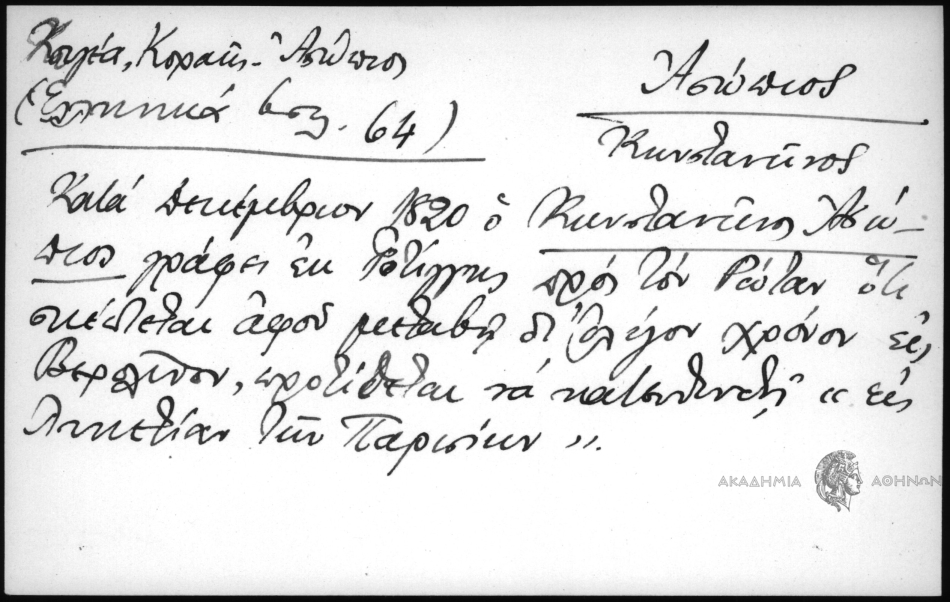 Κουγέα, Κοραῆς - Ἀσώπιος
(Ἑλληνικά σελ. 64)
Ἀσώπιος
Κωνσταντῖνος
Κατά Δεκέμβριον 1820 ὁ Κωνσταντῖνος Ἀσώ-
πιος γράφει ἐκ Γοτίγγης πρός τόν Ρώταν ὅτι
σκέπτεται ἀφοῦ μεταβῇ δι' ὀλίγον χρόνον εἰς
Βερολῖνον, προτίθεται νά κατευθυνθῇ « εἰς
Λουκετίαν τῶν Παρισίων ».
ΑΚΑΔΗΜΙΑ ΑΘΗΝΩΝ